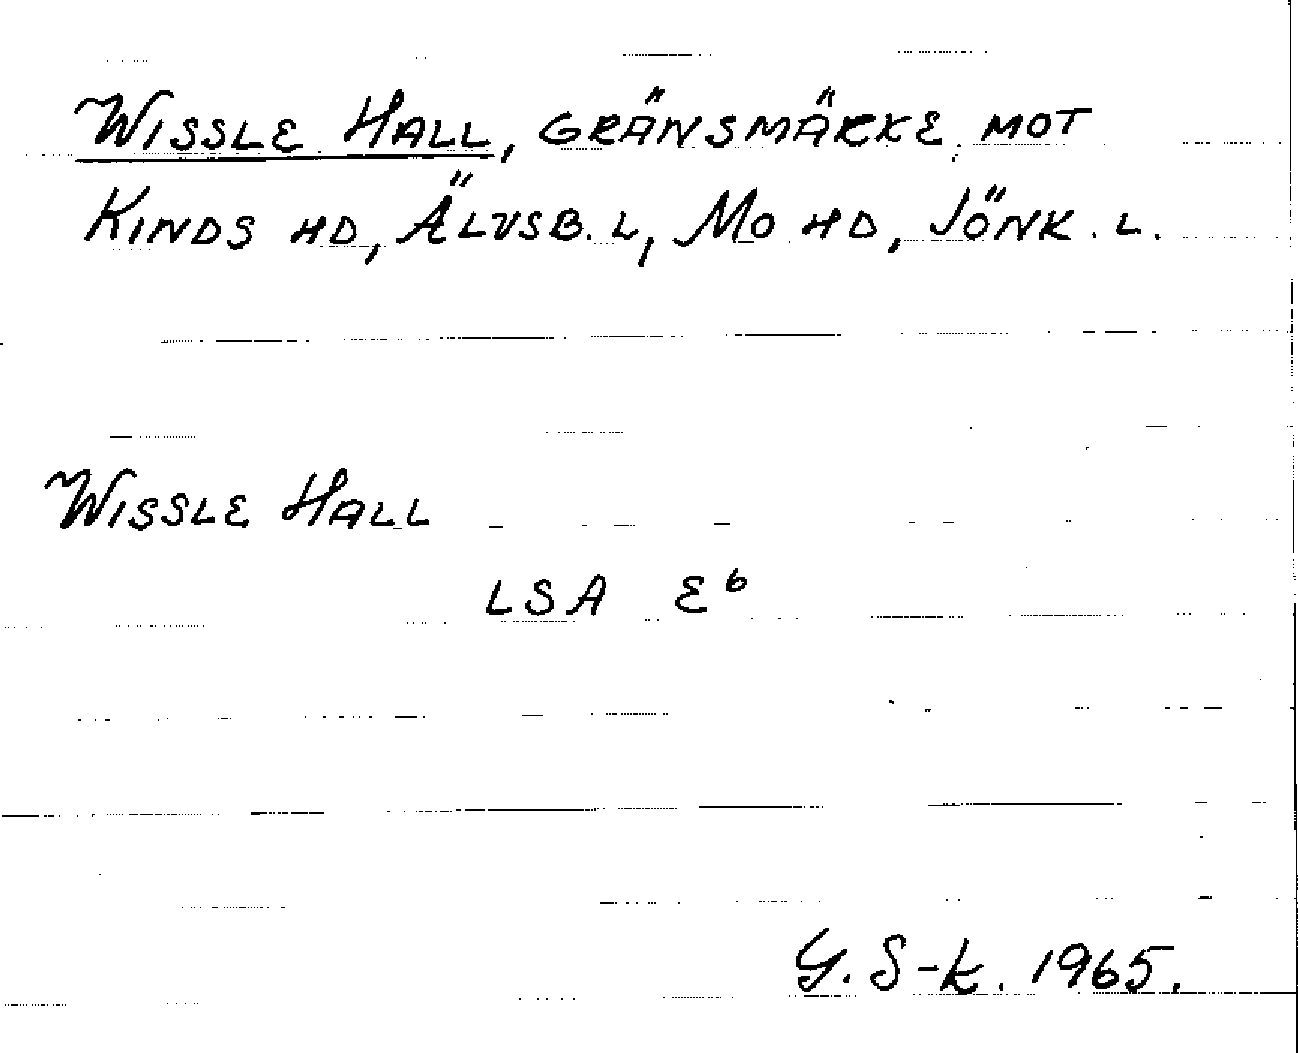 WISSLE HALL, GRÄNSMÄRKE MOT
KINDS HD, ÄLVSB. L, MO HD, JÖNK. L.
WISSLE HALL
LSA E⁶
G. S-k. 1965.